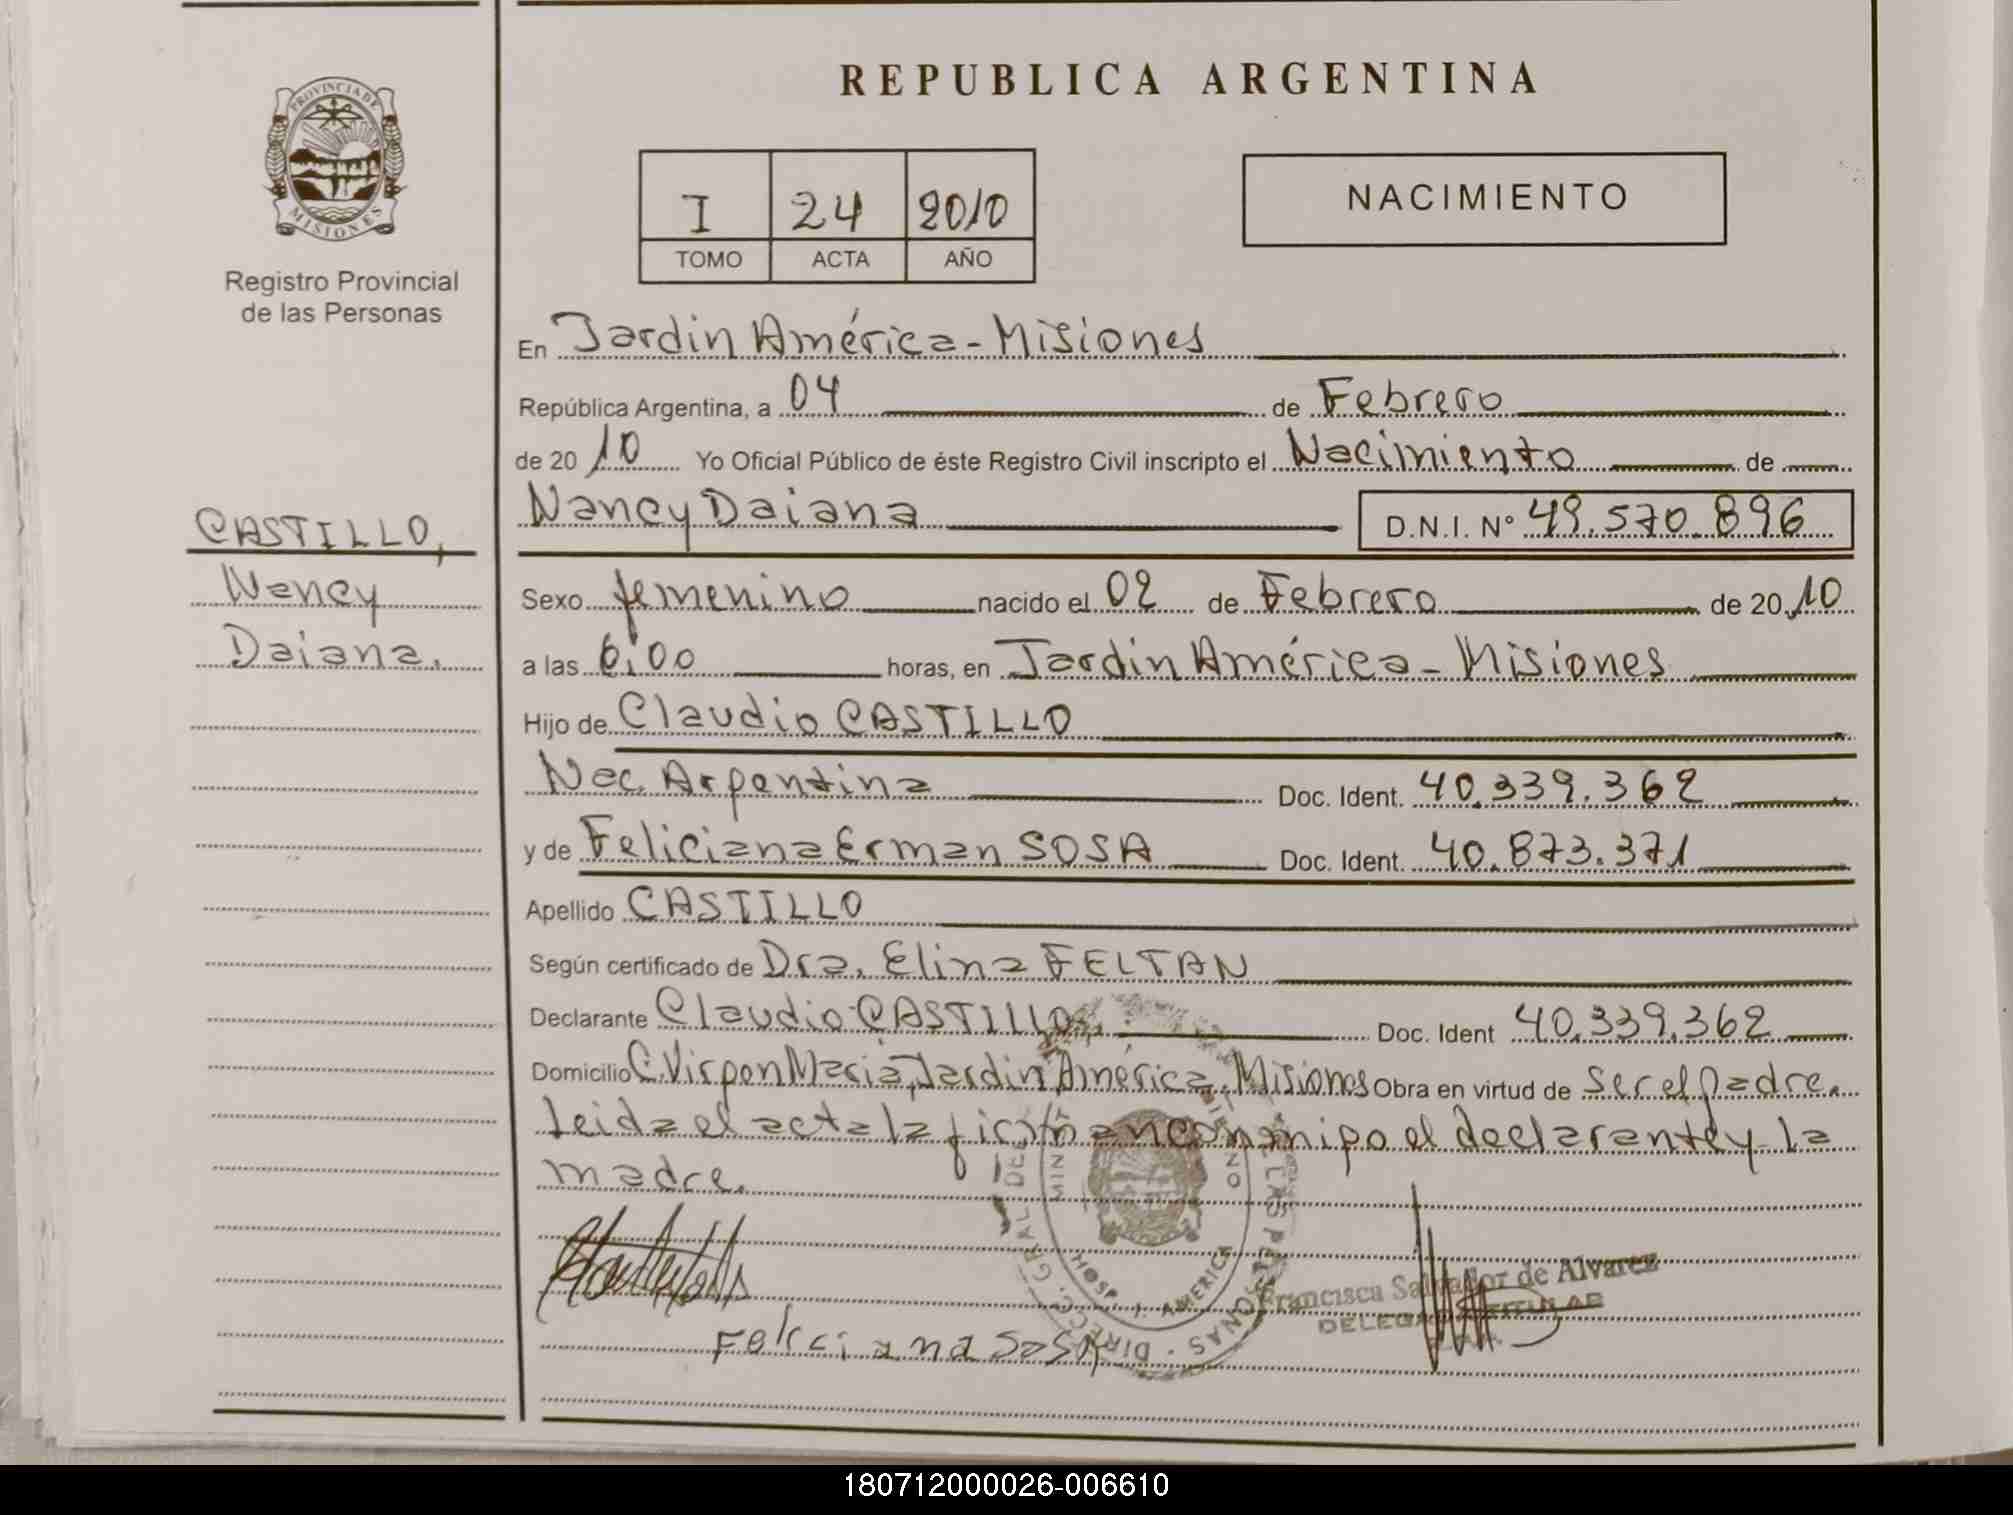 REPUBLICA ARGENTINA
PROVINCIA DE
MISIONES
Registro Provincial
de las Personas
I 24 2010
TOMO ACTA AÑO
NACIMIENTO
En Jardin América - Misiones
República Argentina, a 04 de Febrero
de 2010 Yo Oficial Público de éste Registro Civil inscripto el Nacimiento de
Nancy Daiana D.N.I. Nº 49.570.896
CASTILLO,
Nancy
Daiana.
Sexo femenino nacido el 02 de Febrero de 20 10
a las 6:00 horas, en Jardin América - Misiones
Hijo de Claudio CASTILLO
Nac. Argentina Doc. Ident. 40.339.362
y de Feliciana Erman SOSA Doc. Ident. 40.873.371
Apellido CASTILLO
Según certificado de Dra. Elina FELTAN
Declarante Claudio CASTILLO Doc. Ident 40.339.362
Domicilio C. Virgen Maria, Jardin América. Misiones Obra en virtud de ser el padre.
Leida el acta la firman conmigo el declarante y la
madre.
HOSP. J. AMERICA
Francisca Salvador de Alvarez
DELEGADA TITULAR
Feliciana Sosa
180712000026-006610